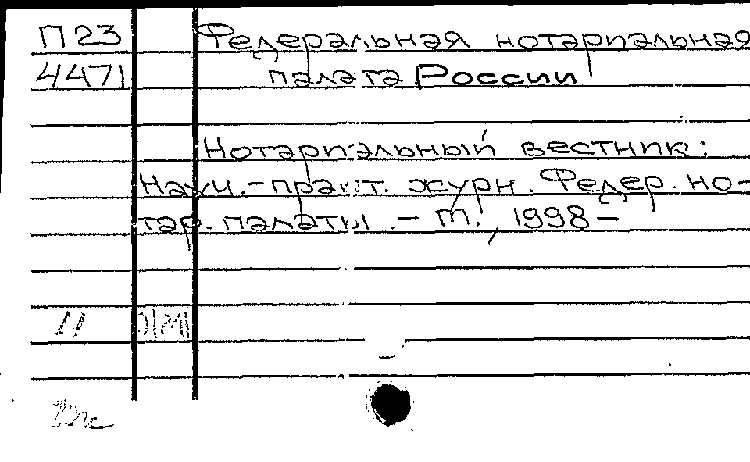 П 23
4471
Федеральная нотариальная
палата России
Нотариальный вестник:
Научн.-практ. журн. Федер. но-
тар. палаты. - М., 1998 -
11